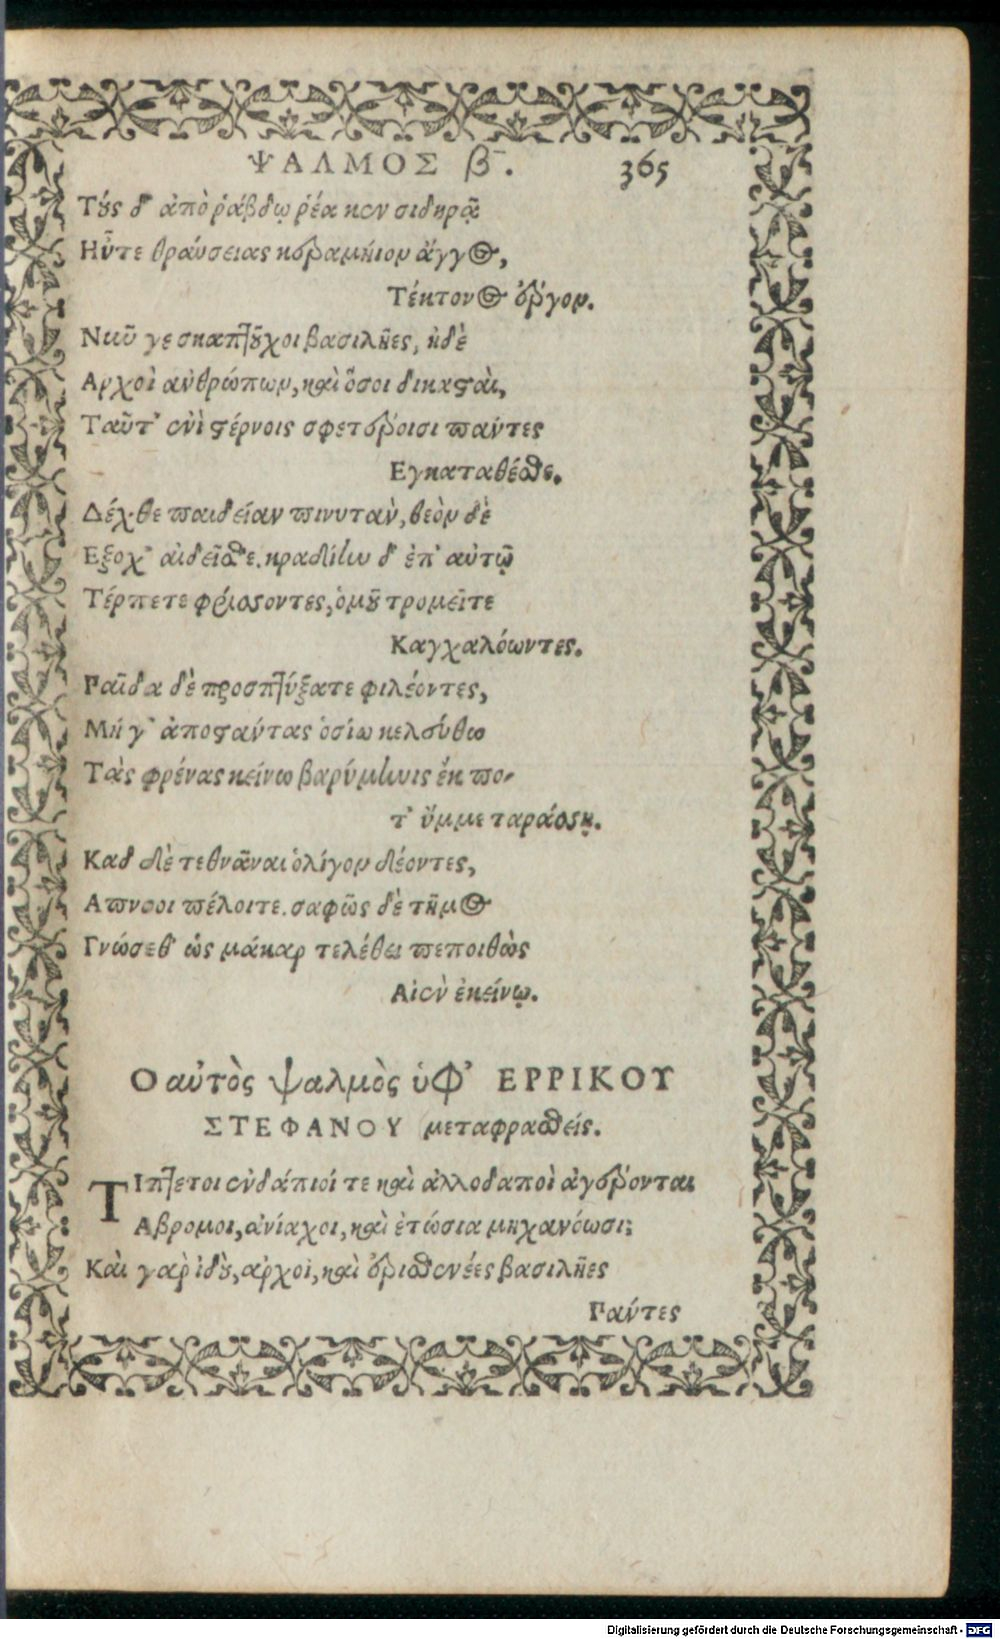 ΨΑΛΜΟΣ β. 365
Τοὺς δ' ἀπὸ ῥάβδῳ ῥέα κεν σιδηρᾷ
Ηὖτε θραύσειας κεραμήιον ἄγγος,
Τέκτονος ἔργον.
Νῦν γε σκαπτοῦχοι βασιλῆες, ἠδὲ
Αρχοὶ ἀνθρώπων, καὶ ὅσοι δικασταὶ,
Ταῦτ' ἐνὶ στέρνοις σφετέροισι πάντες
Εγκαταθέσθε.
Δέχθε παιδείαν πινυτὰν, θεὸν δὲ
Εξοχ' αἰδεῖσθε. κραδίην δ' ἐπ' αὐτῷ
Τέρπετε φρίσσοντες, ὁμοῦ τρομεῖτε
Καγχαλόωντες.
Παῖδα δὲ προσπτύξατε φιλέοντες,
Μή γ' ἀποστάντας ὁσίω κελεύθω
Τὰς φρένας κείνω βαρύμηνις ἔκ πο-
τ' ὔμμε ταράσσῃ.
Καδ δὲ τεθνᾶναι ὀλίγον δέοντες,
Απνοοι πέλοιτε. σαφῶς δὲ τῆμος
Γνώσεθ' ὡς μάκαρ τελέθει πεποιθὼς
Αἰὲν ἐκείνῳ.
Ο αὐτὸς ψαλμὸς ὑφ' ΕΡΡΙΚΟΥ
ΣΤΕΦΑΝΟΥ μεταφρασθείς.
ΤΙπτετοι ἐνδάπιοί τε καὶ ἀλλοδαποὶ ἀγέρονται
Αβρομοι, ἀνίαχοι, καὶ ἐτώσια μηχανόωσι;
Καὶ γὰρ ἰδοὺ, ἀρχοὶ, καὶ ἐρισθενέες βασιλῆες
Πάντες
Digitalisierung gefördert durch die Deutsche Forschungsgemeinschaft - DFG